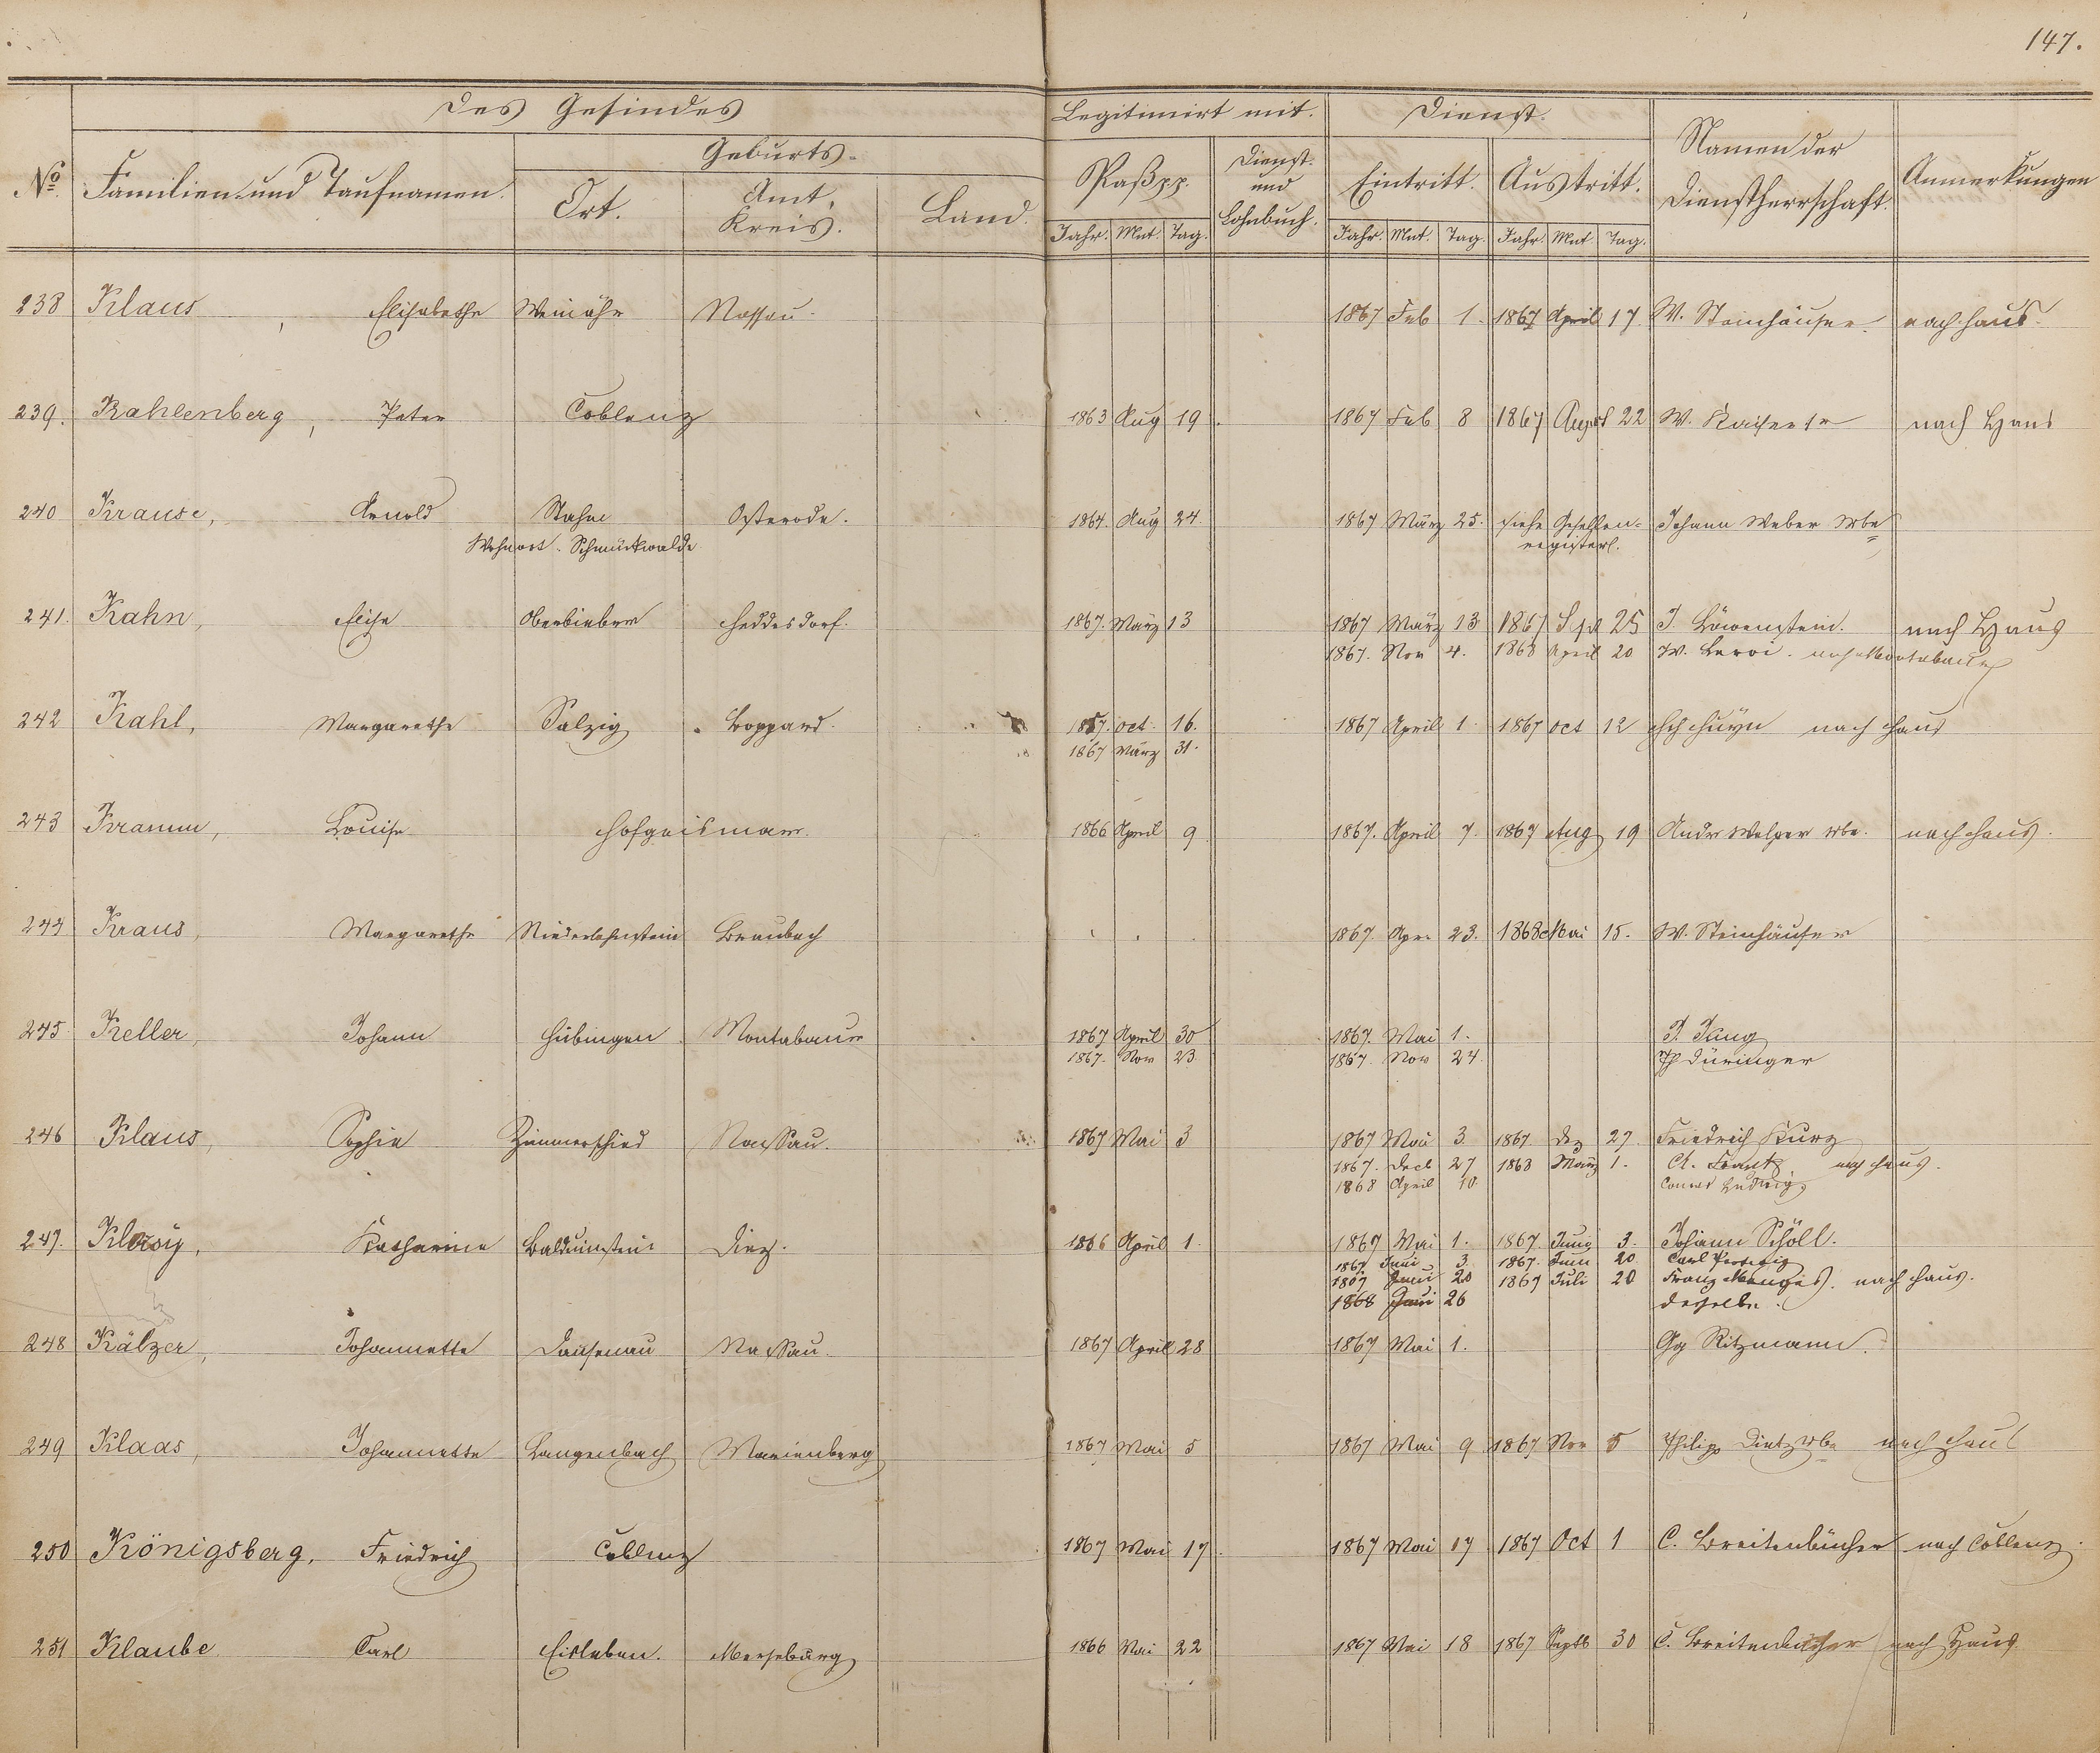 147.
Des Gesindes
Legitimirt mit.
Dienst.
Namen der Dienstherrschaft.
Anmerkungen
No. Familien- und Taufnamen.
Geburts-
Ort. Amt, Kreis. Land.
Paß pp.
Dienst- und Lohnbuch.
Eintritt. Austritt.
Jahr. Mnt. Tag. Jahr. Mnt. Tag. Jahr. Mnt. Tag.
238 Klaus, Elisabethe Weinähr Nassau. 1867 Feb 1. 1867 April 17 W. Steinhäuser. nach Haus.
239. Kahlenberg, Peter Coblenz 1863 Aug 19. 1867 Feb 8 1867 August 22 W. nach Haus
240 Krause, Arnold Osterode. 1864. Aug 24. 1867 März 25. siehe Gesellen- Johann Weber Wbe
Wohnort. Schmückwalde registerl.
241. Kahn, Elise Oberbieber Heddesdorf. 1867. März 13 1867 März 13 1867 Spt 25 J. Löwenstein. nach Haus
1867. Nov 4. 1868 April 20 W. Leroi. nach Montabaur
242 Kahl, Margarethe Salzig Boppard. 1857. Oct. 16. 1867 April 1. 1867 Oct 12 nach Haus
1867 März 31.
243 Kramm, Louise Hofgeismar. 1866 April 9 1867. April 7. 1867 Aug 19 Andr Wbe. nach Haus.
244 Kraus, Margarethe Niederlahnstein Braubach 1867. Apr. 23. 1868 Mai 15. W. Steinhäuser
245 Keller, Johann Hübingen Montabaur 1867 April 30 1867. Mai 1. J. Jung
1867. Nov 23 1867. Nov 24. Ph Düringer
246 Klaus, Sophie Zimmerschied Nassau. 1867 Mai 3 1867 Mai 3. 1867 Dez 27. Friedrich Kurz
1867. Decb 27 1868 März 1. Ch. Frantz. nach Haus.
1868 April 10. Conrad Ludwig
247. Katharine Balduinstein Diez. 1866 April 1. 1867 Mai 1. 1867. Juni 3. Johann Schöll.
1867 Juni 3. 1867. Juni 20 Carl
1867 Juni 20 1867 Juli 20 Franz Menges. nach Haus.
1868 Juni 26 derselbe.
248 Kälzer, Johannette Dausenau Nassau. 1867 April 28 1867 Mai 1. Gg Ritzmann.
249 Klaas, Johannette Langenbach Marienberg 1867 Mai 5 1867 Mai 9 1867 Nov 5 Philipp Dietz Wbe nach Haus
250 Königsberg, Friedrich Coblenz 1867 Mai 17. 1867 Mai 17 1867 Oct 1 C. Breitenbücher nach Coblenz.
251 Klaube Carl Eisleben. Merseburg 1866 Mai 22 1867 Mai 18 1867 Septb 30 C. Breitenbücher nach Haus.